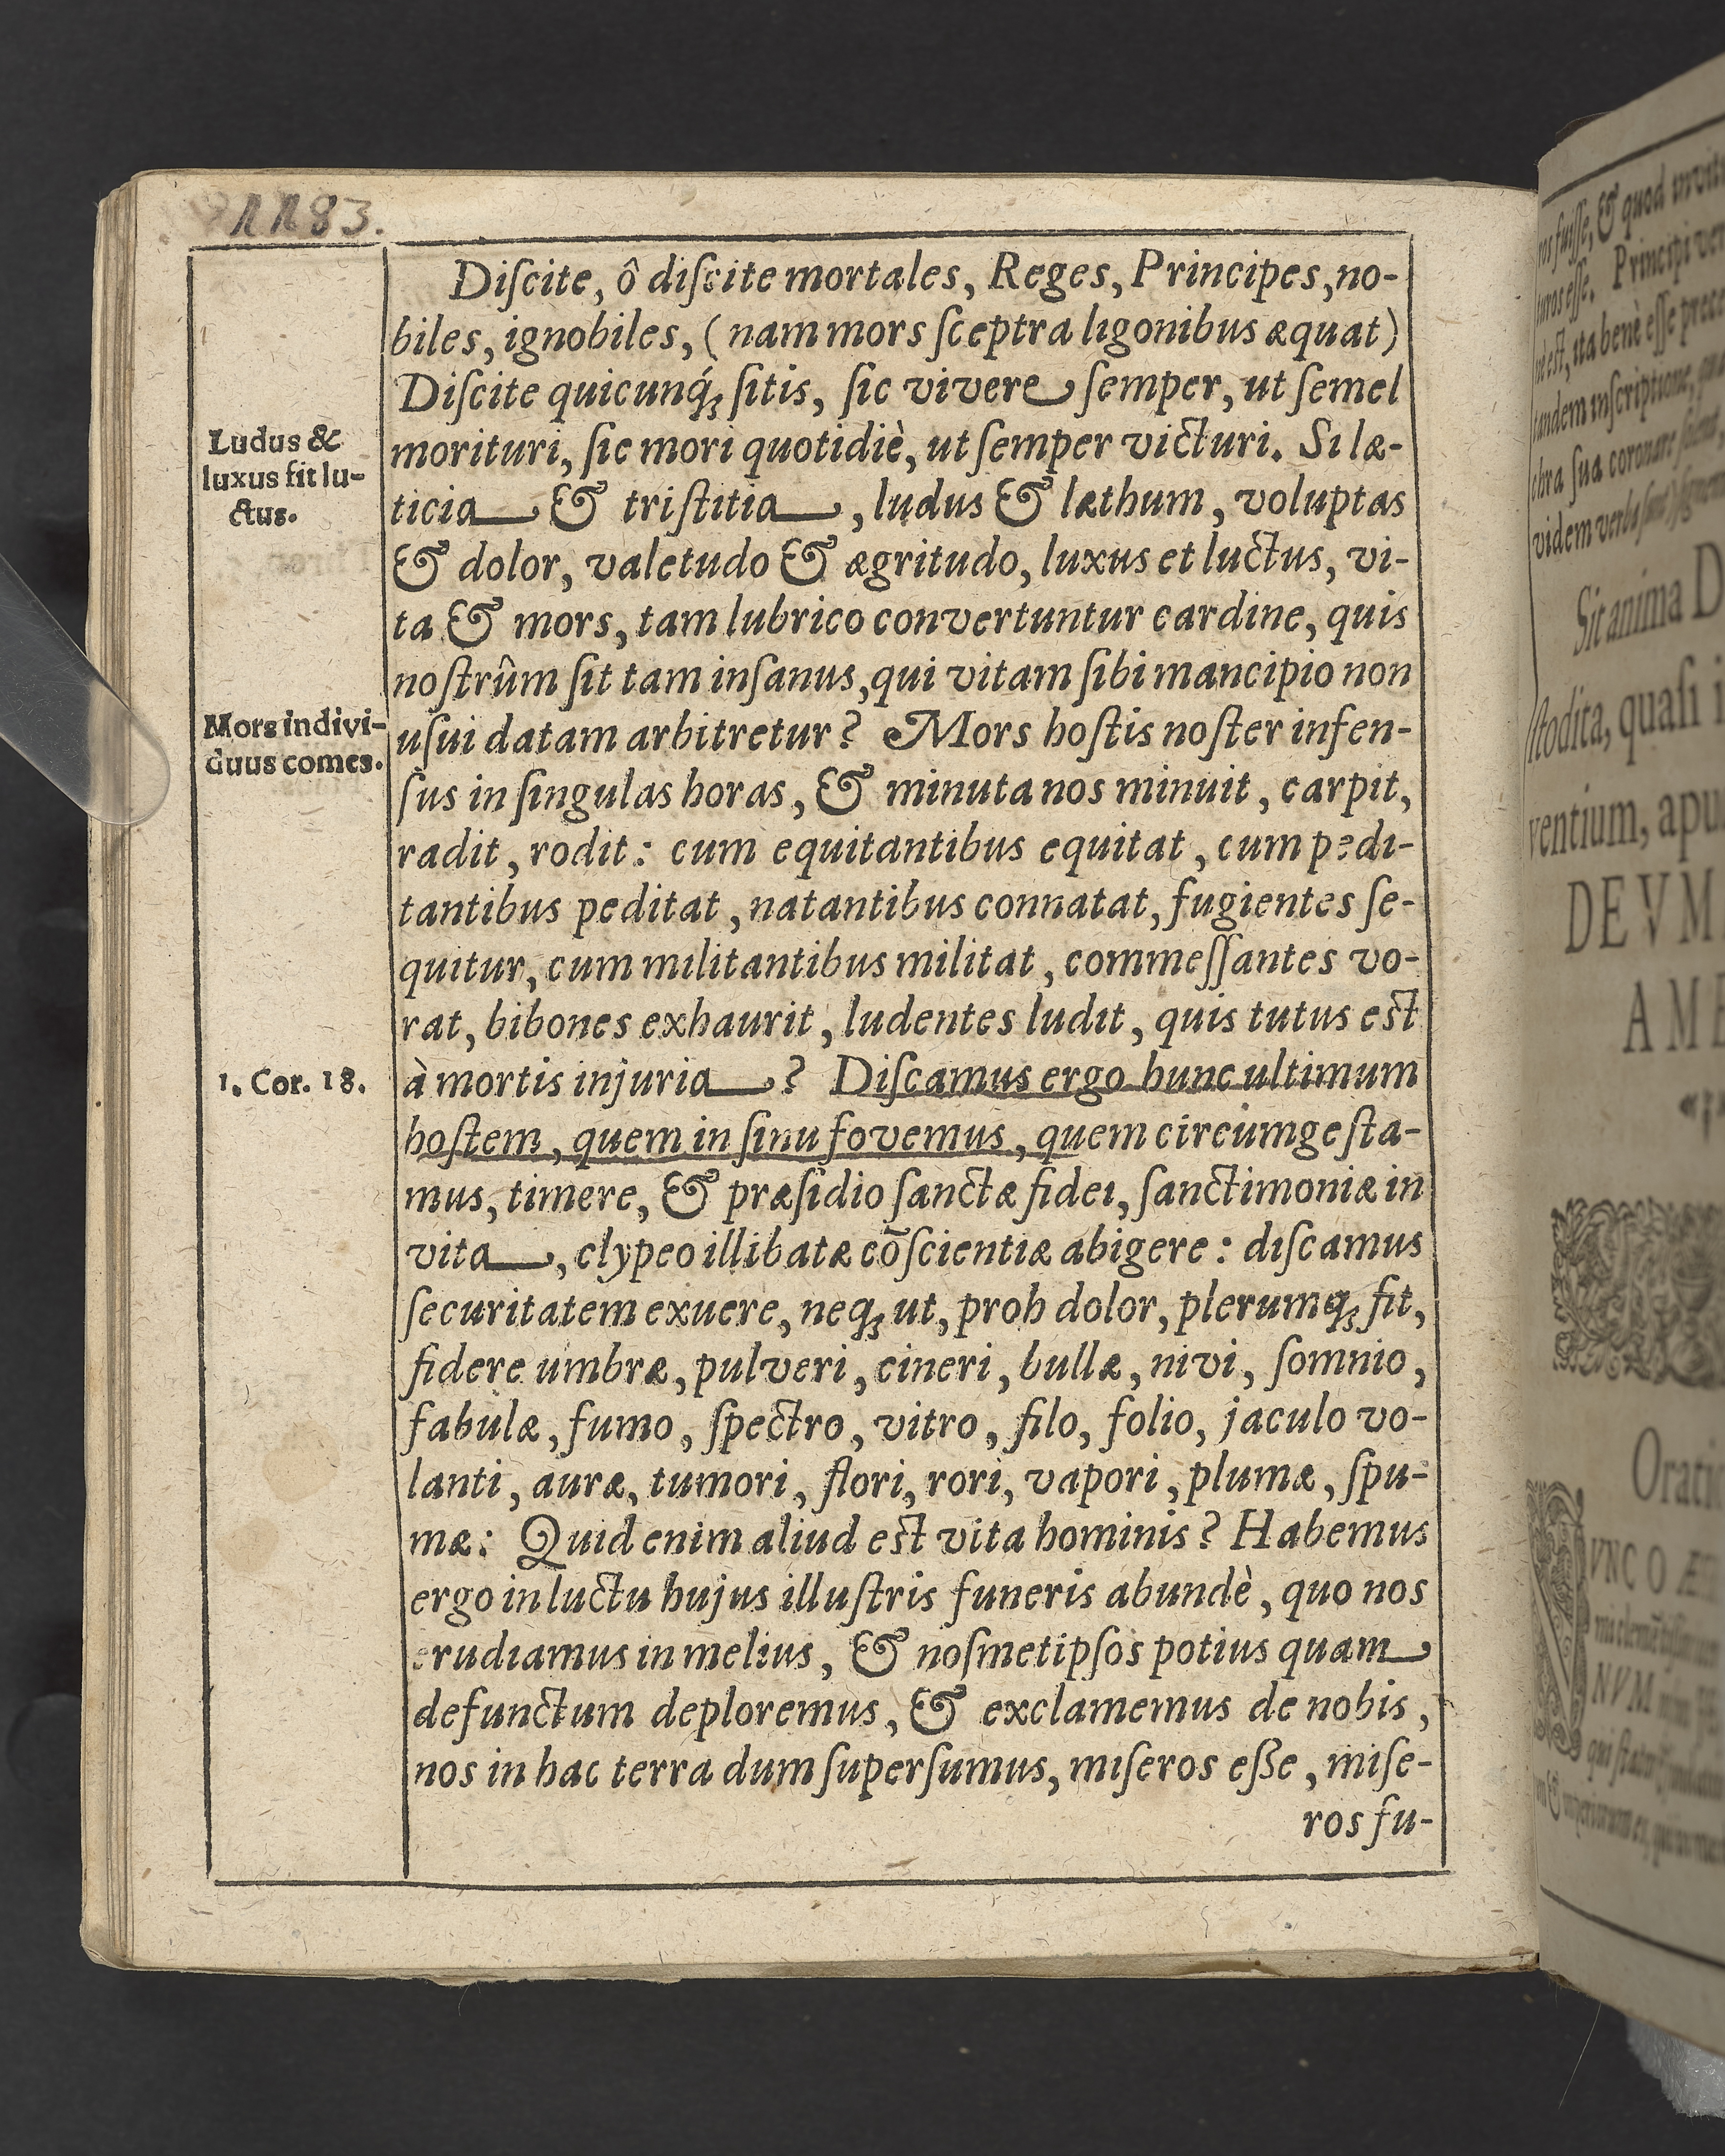 1183.
Diſcite, ô diſcite mortales, Reges, Principes, no-
biles, ignobiles, (nam mors ſceptra ligonibus æquat)
Diſcite quicunq́; ſitis, ſic vivere ſemper, ut ſemel
morituri, ſic mori quotidiè, ut ſemper victuri. Si læ-
ticia & triſtitia, ludus & læthum, voluptas
& dolor, valetudo & ægritudo, luxus et luctus, vi-
ta & mors, tam lubrico convertuntur cardine, quis
noſtrûm ſit tam inſanus, qui vitam ſibi mancipio non
uſui datam arbitretur? Mors hoſtis noſter infen-
ſus in ſingulas horas, & minuta nos minuit, carpit,
radit, rodit: cum equitantibus equitat, cum pedi-
tantibus peditat, natantibus connatat, fugientes ſe-
quitur, cum militantibus militat, commeſſantes vo-
rat, bibones exhaurit, ludentes ludit, quis tutus est
à mortis injuria? Diſcamus ergo hunc ultimum
hoſtem, quem in ſinu fovemus, quem circumgeſta-
mus, timere, & præſidio ſanctæ fidei, ſanctimoniæ in
vita, clypeo illibatæ cōſcientiæ abigere: diſcamus
ſecuritatem exuere, neq; ut, proh dolor, plerumq; fit,
fidere umbræ, pulveri, cineri, bullæ, nivi, ſomnio,
fabulæ, fumo, ſpectro, vitro, filo, folio, jaculo vo-
lanti, auræ, tumori, flori, rori, vapori, plumæ, ſpu-
mæ: Quid enim aliud est vita hominis? Habemus
ergo in luctu hujus illuſtris funeris abundè, quo nos
erudiamus in melius, & noſmetipſos potius quam
defunctum deploremus, & exclamemus de nobis,
nos in hac terra dum ſuperſumus, miſeros eſſe, miſe-
ros fu-
Ludus &
luxus fit lu-
ctus.
Mors indivi-
duus comes.
1. Cor. 18.
Sic anima D
ſtodita, quaſi i
ventium, apu
DEVM
AME
Oratio